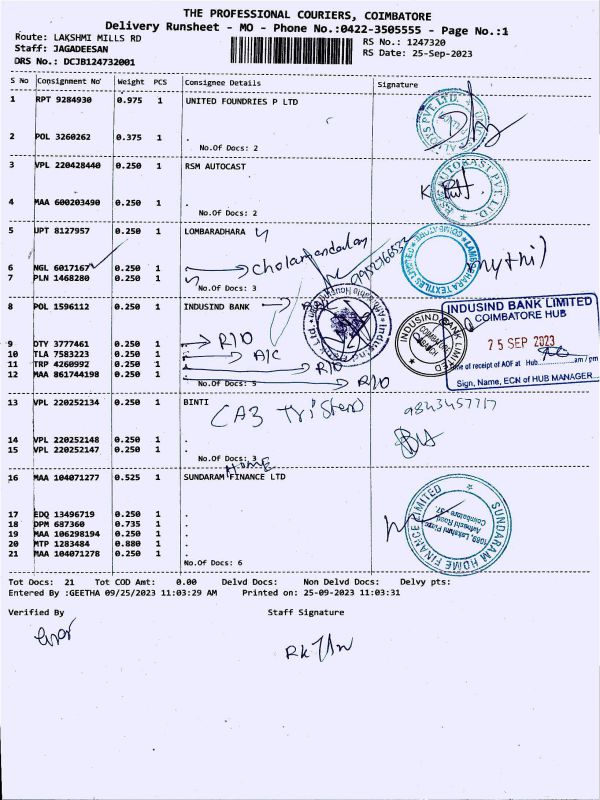 THE PROFESSIONAL COURIERS, COIMBATORE
Delivery Runsheet - MO - Phone No.:0422-3505555 - Page No.:1
Route: LAKSHMI MILLS RD
RS No.: 1247320
Staff: JAGADEESAN
RS Date: 25-Sep-2023
DRS No.: DCJB124732001
S No Consignment No' Weight PCS Consignee Details Signature
1 RPT 9284930 0.975 1 UNITED FOUNDRIES P LTD
2 POL 3260262 0.375 1 .
No.Of Docs: 2
3 VPL 220428440 0.250 1 RSM AUTOCAST
4 MAA 600203490 0.250 1 .
No.Of Docs: 2
5 JPT 8127957 0.250 1 LOMBARADHARA
6 NGL 6017167 0.250 1 . Cholamandalam
7 PLN 1468280 0.250 1 .
No.Of Docs: 3
8 POL 1596112 0.250 1 INDUSIND BANK
INDUSIND BANK LIMITED
COIMBATORE HUB
25 SEP 2023
Time of receipt of AOF at Hub am / pm
Sign, Name, ECN of HUB MANAGER
INDUSIND BANK LIMITED
COIMBATORE
9 DTY 3777461 0.250 1 . R10
10 TLA 7583223 0.250 1 . A/C
11 TRP 4260992 0.250 1 . R10
12 MAA 861744198 0.250 1 . R10
No.Of Docs: 5
13 VPL 220252134 0.250 1 BINTI
9843457717
14 VPL 220252148 0.250 1 .
15 VPL 220252147 0.250 1 .
No.Of Docs: 3
Home
16 MAA 104071277 0.525 1 SUNDARAM FINANCE LTD
SUNDARAM HOME FINANCE LIMITED
1068, Lakshmi Plaza
Avinashi Road
Coimbatore - 37.
17 EDQ 13496719 0.250 1 .
18 DPM 687360 0.735 1 .
19 MAA 106298194 0.250 1 .
20 MTP 1283484 0.880 1 .
21 MAA 104071278 0.250 1 .
No.Of Docs: 6
Tot Docs: 21 Tot COD Amt: 0.00 Delvd Docs: Non Delvd Docs: Delvy pts:
Entered By :GEETHA 09/25/2023 11:03:29 AM Printed on: 25-09-2023 11:03:31
Verified By Staff Signature